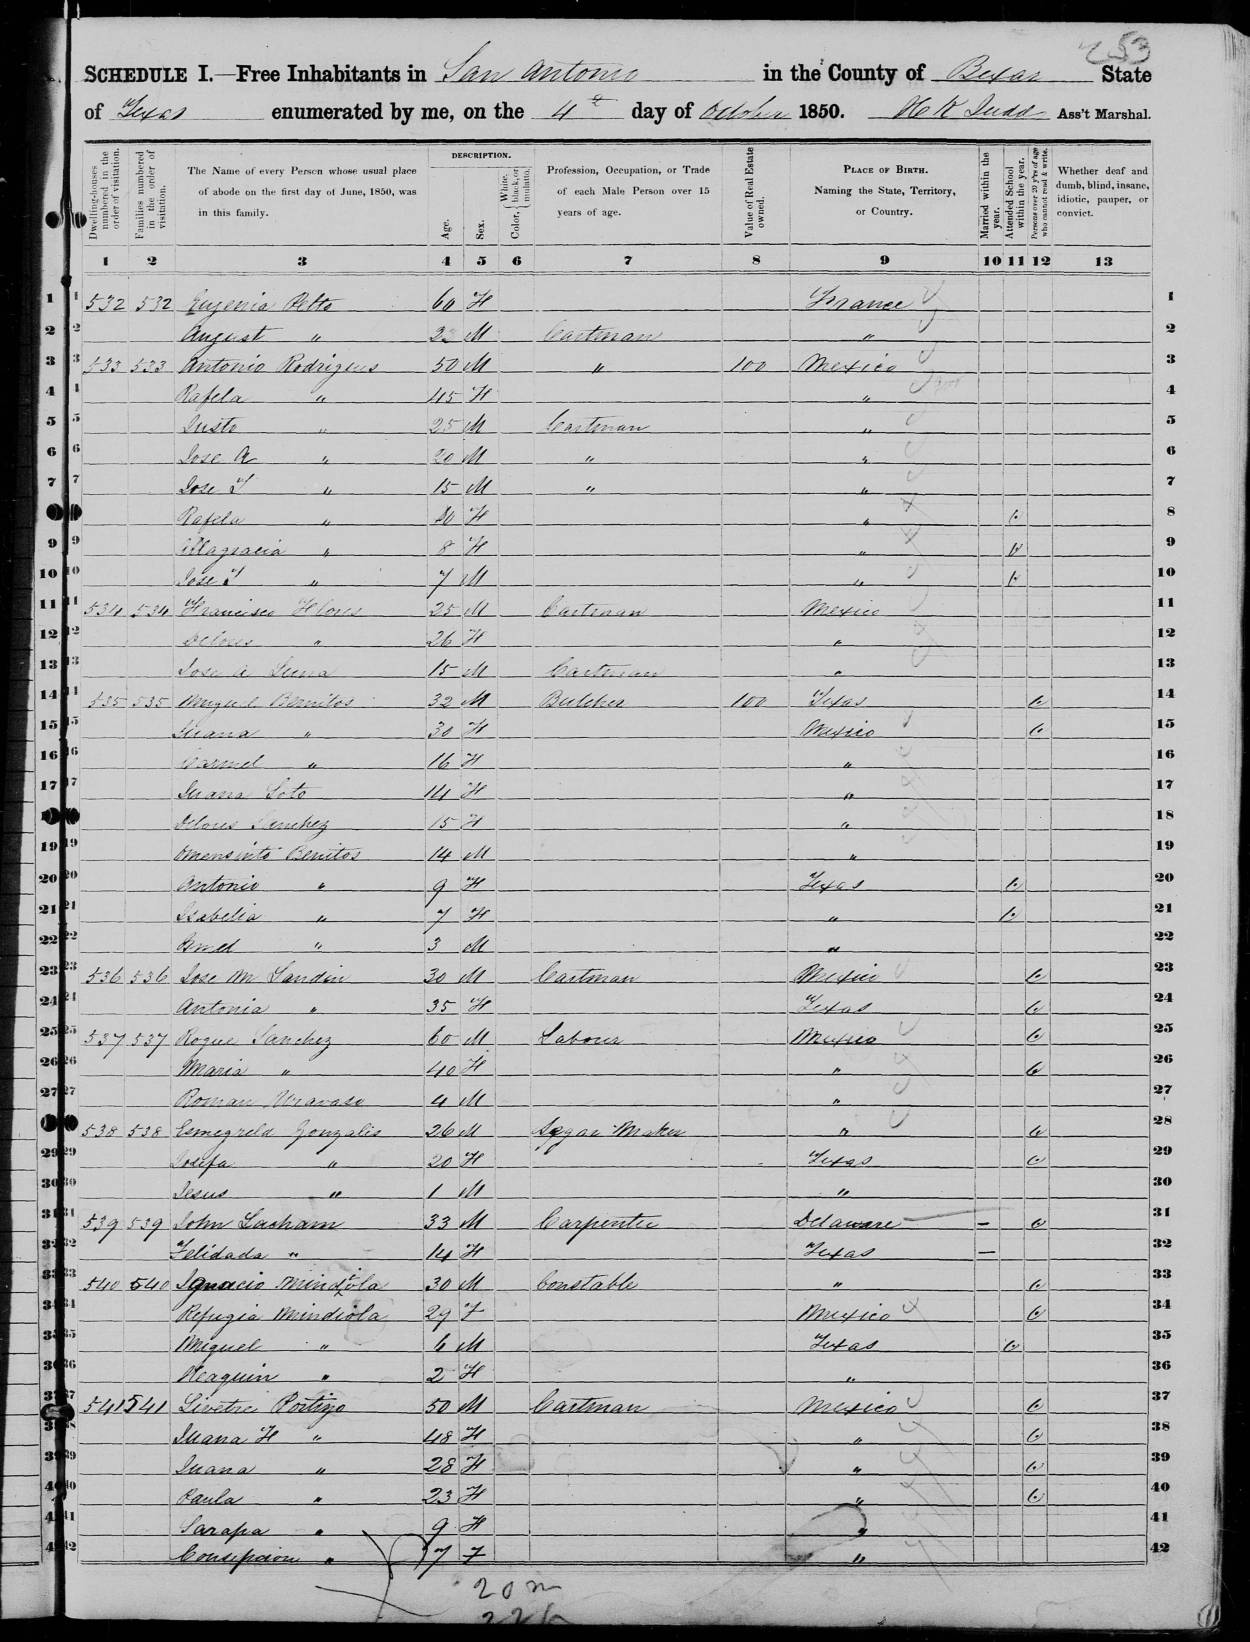 253
SCHEDULE I.—Free Inhabitants in San Antonio in the County of Bexar State
of Texas enumerated by me, on the 4th day of October 1850. H K Judd Ass't Marshal.
Dwelling-houses numbered in the order of visitation.
Families numbered in the order of visitation.
The Name of every Person whose usual place of abode on the first day of June, 1850, was in this family.
DESCRIPTION.
Age.
Sex.
Color, { White, black, or mulatto.
Profession, Occupation, or Trade of each Male Person over 15 years of age.
Value of Real Estate owned.
PLACE OF BIRTH. Naming the State, Territory, or Country.
Married within the year.
Attended School within the year.
Persons over 20 y'rs of age who cannot read & write.
Whether deaf and dumb, blind, insane, idiotic, pauper, or convict.
1 2 3 4 5 6 7 8 9 10 11 12 13
1 532 532 Eugenia 60 F France 1
2 August " 23 M Cartman " 2
3 533 533 Antonio Rodrigues 50 M " 100 Mexico 3
4 Rafela " 45 F " 4
5 Justo " 25 M Cartman " 5
6 Jose A " 20 M " " 6
7 Jose T " 15 M " " 7
8 Rafela " 10 F " 8
9 " 8 F " 9
10 Jose " 7 M " 10
11 534 534 Francisco Flores 25 M Cartman Mexico 11
12 Delores " 26 F " 12
13 Jose A 15 M Cartman " 13
14 535 535 Miguel Benitos 32 M Butcher 100 Texas 14
15 Juana " 30 F Mexico 15
16 Carmel " 16 F " 16
17 Juana Soto 14 F " 17
18 Delores Sanchez 15 F " 18
19 Benitos 14 M " 19
20 Antonio " 9 F Texas 20
21 Isabelia " 7 F " 21
22 " 3 M " 22
23 536 536 Jose M Sandin 30 M Cartman Mexico 23
24 Antonia " 35 F Texas 24
25 537 537 Rogue Sanchez 60 M Labour Mexico 25
26 Maria " 40 F " 26
27 Roman 4 M " 27
28 538 538 Esmegreld Gonzalis 26 M Segar Maker " 28
29 Josefa " 20 F Texas 29
30 Jesus " 1 M " 30
31 539 539 John Lacham 33 M Carpenter Delaware – 31
32 Felidada " 14 F Texas – 32
33 540 540 Ignacio Mindiola 30 M Constable " 33
34 Refugia Mindiola 29 F Mexico 34
35 Miguel " 6 M Texas 35
36 " 2 F " 36
37 541 541 50 M Cartman Mexico 37
38 Juana F " 48 F " 38
39 Juana " 28 F " 39
40 Paula " 23 F " 40
41 Sarapa " 9 F " 41
42 Consepcion " 7 F " 42
20 m
22 f